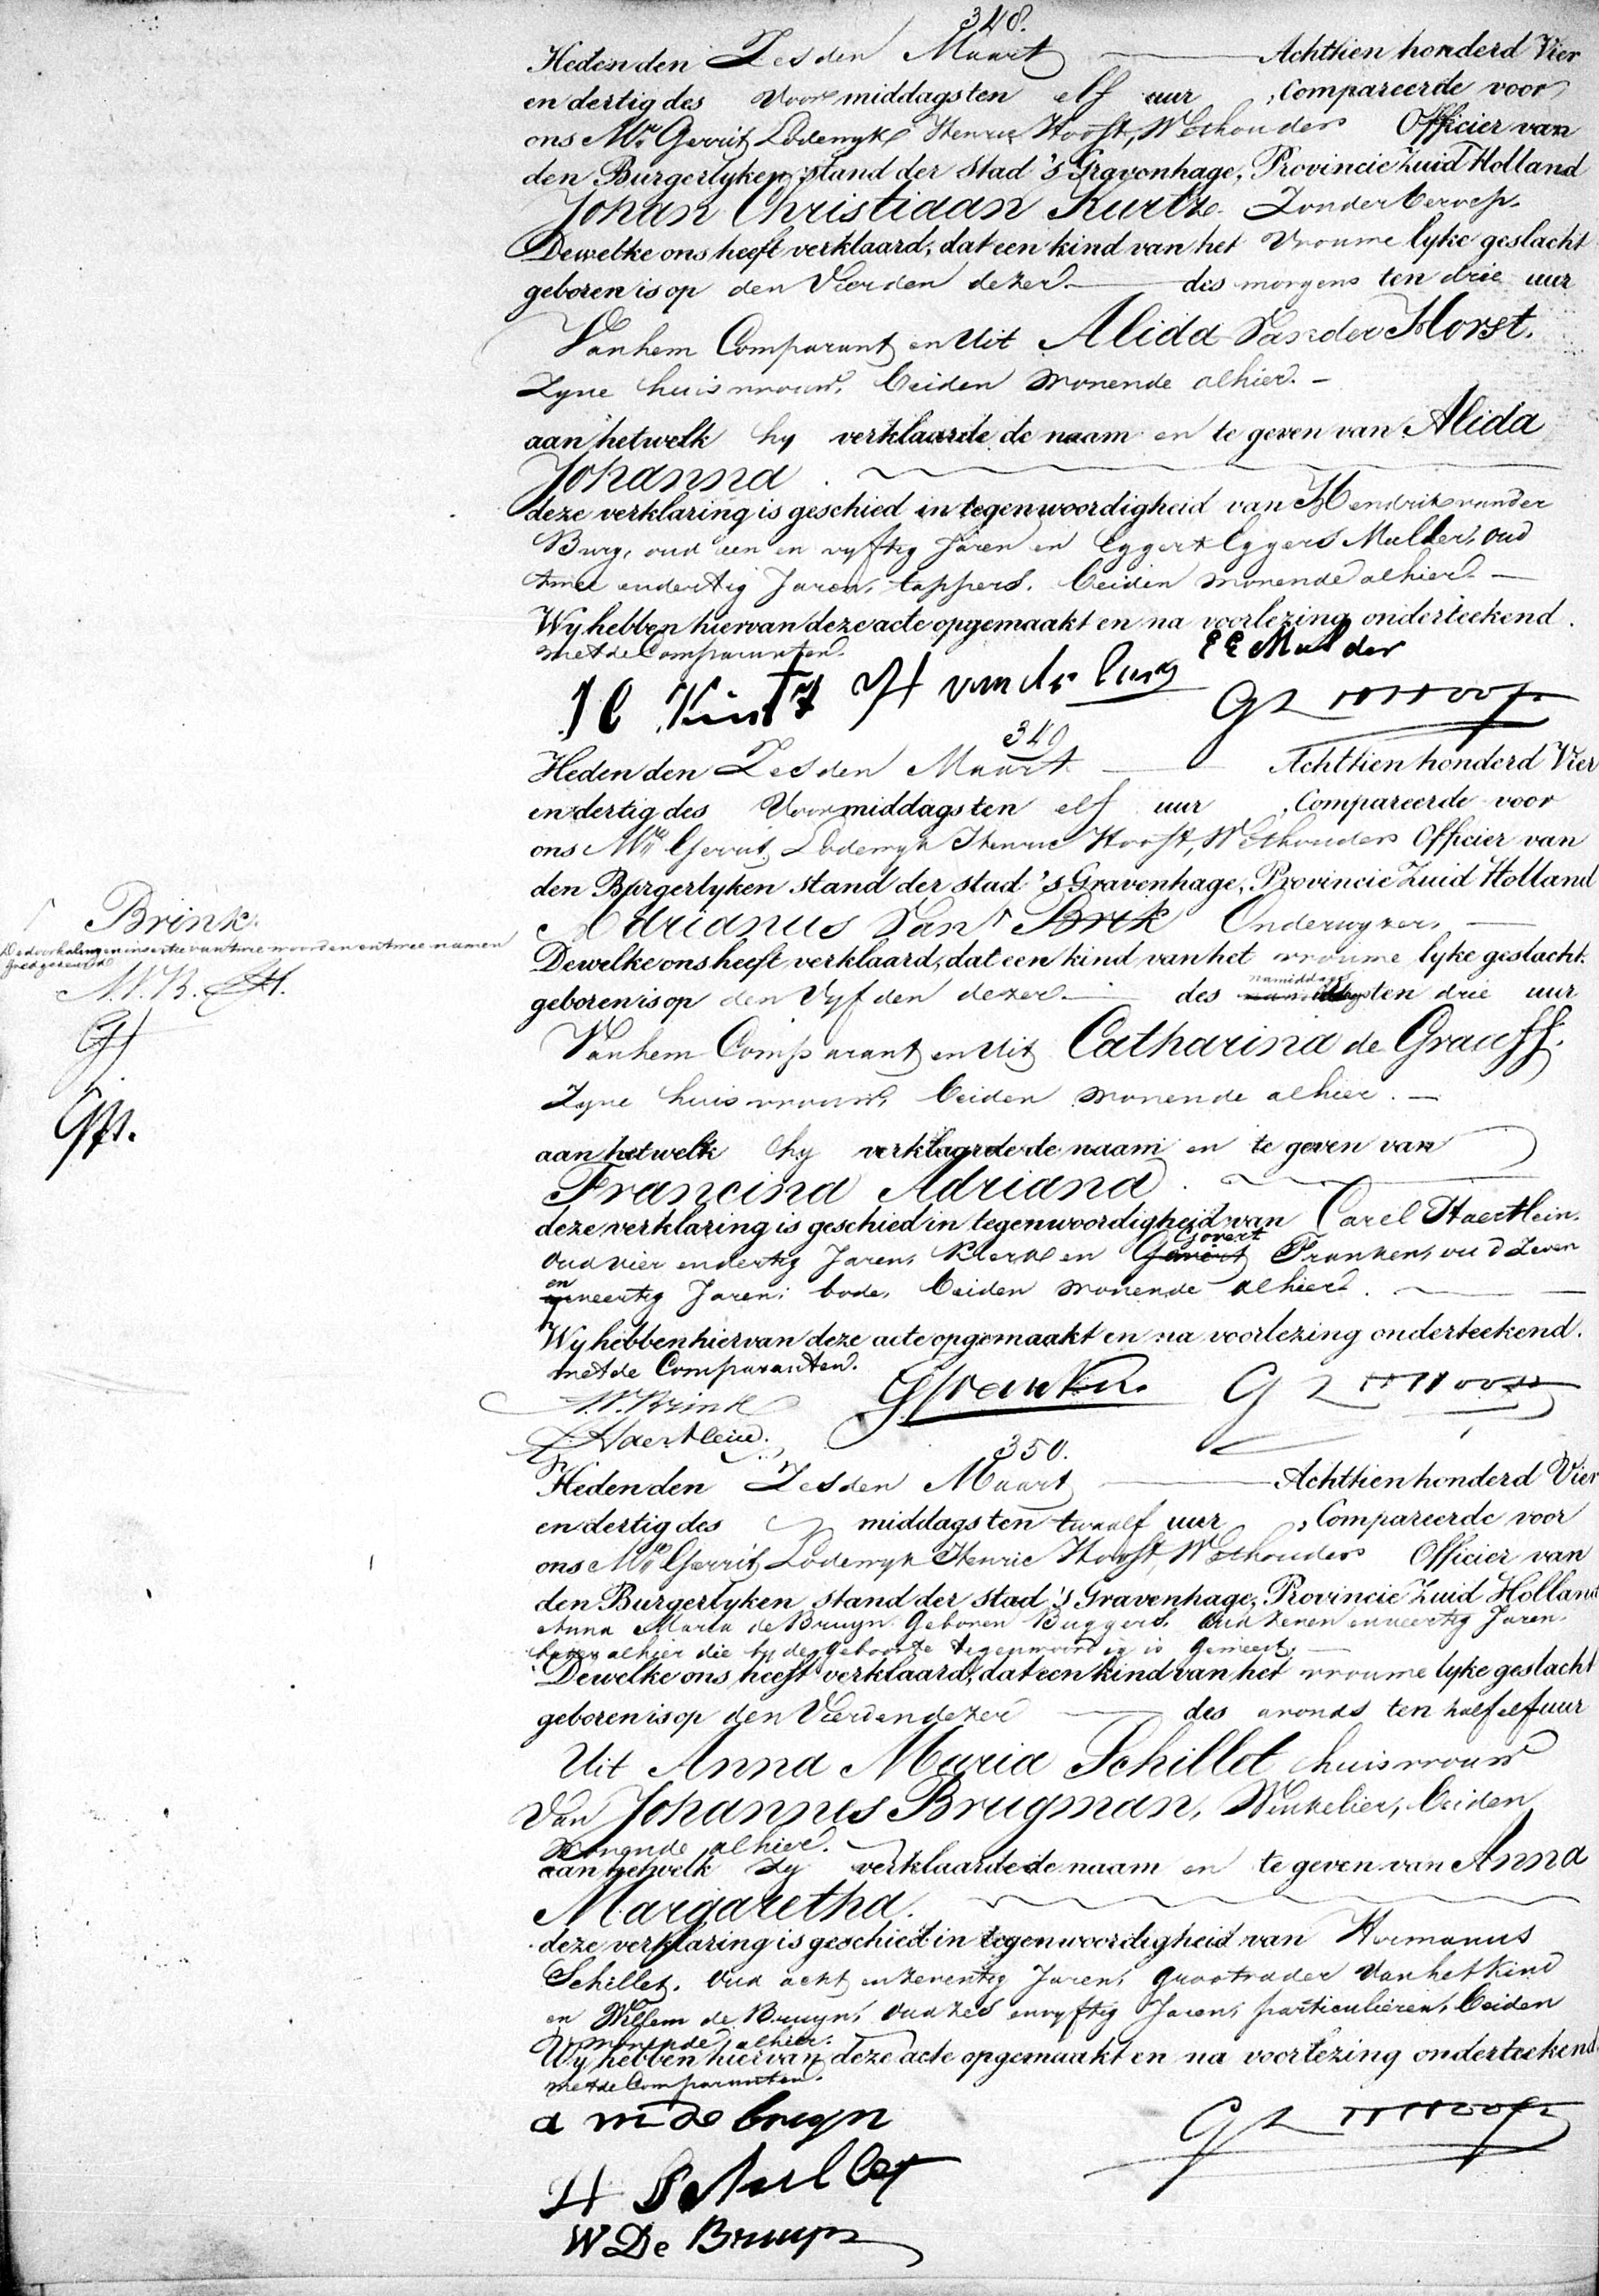 348.
Heden den Zesden Maart Achttien honderd Vier
en dertig des Voor middags ten elf uur , Compareerde voor
ons Mr. Gerrit Lodewyk Henric Hooft, Wethouder Officier van
den Burgerlyken stand der stad 's Gravenhage, Provincie Zuid Holland
Johan Christiaan Kurtz. Zonder beroep.
Dewelke ons heeft verklaard, dat een kind van het Vrouwe lyke geslacht
geboren is op den Vierden dezer. des morgens ten drie uur
Van hem Comparant en Uit Alida Van der Horst.
Zyne huisvrouw, beiden wonende alhier. -
aan hetwelk hy verklaarde de naam en te geven van Alida
Johanna.
deze verklaring is geschied in tegenwoordigheid van Hendrik van der
Burg, oud een en vyftig Jaren en Eggert Eggers Mulder, oud
twee en dertig Jaren, tappers, beiden wonende alhier. -
Wy hebben hiervan deze acte opgemaakt en na voorlezing onderteekend.
met de Comparanten.
E E Mulder
J C Kurtz H van der burg
G L H Hooft
349
Heden den Zesden Maart Achttien honderd Vier
en dertig des Voor middags ten elf uur , Compareerde voor
ons Mr. Gerrit Lodewyk Henric Hooft, Wethouder Officier van
den Burgerlyken stand der stad 's Gravenhage, Provincie Zuid Holland
Brink.
Adrianus Van Brik Onderwyzer,
De doorhaling en insertie van twee woorden en twee namen
goedgekeurd
Dewelke ons heeft verklaard, dat een kind van het vrouwe lyke geslacht.
namiddags
geboren is op den Vyfden dezer. des ten drie uur
Van hem Comparant en Uit Catharina de Graaff.
Zyne huisvrouw, beiden wonende alhier. -
aan hetwelk hy verklaarde de naam en te geven van
Francina Adriana.
deze verklaring is geschied in tegenwoordigheid van Carel Haertlein.
Govert
oud vier en dertig Jaren, Klerk en Franken, oud zeven
en
veertig Jaren, bode, beiden wonende alhier.
Wy hebben hiervan deze acte opgemaakt en na voorlezing onderteekend.
met de Comparanten.
Brink GFranken G L H Hooft
Haertlein.
350.
Heden den Zesden Maart Achttien honderd Vier
en dertig des middags ten twaalf uur , Compareerde voor
ons Mr. Gerrit Lodewyk Henric Hooft, Wethouder Officier van
den Burgerlyken stand der stad 's Gravenhage, Provincie Zuid Holland
Anna Maria de Bruyn Geboren Buggers. Oud zeven en veertig Jaren.
alhier die by de geboorte tegenwoordig is geweest,
Dewelke ons heeft verklaard, dat een kind van het vrouwe lyke geslacht
geboren is op den Vierden dezer des avonds ten half elf uur
Uit Anna Maria Schillet huisvrouw
Van Johannes Brugman, Winkelier, beiden
wonende alhier.
aan hetwelk zy verklaarde de naam en te geven van Anna
Margaretha.
deze verklaring is geschied in tegenwoordigheid van Hermanus
Schillet. Oud acht en zeventig Jaren, grootvader van het Kind
en Willem de Bruyn, Oud zes en vyftig Jaren, particulieren, beiden
wonende alhier.
Wy hebben hiervan deze acte opgemaakt en na voorlezing onderteekend
met de Comparanten.
a m de bruyn
G L H Hooft
H Schillet
W De Bruyn